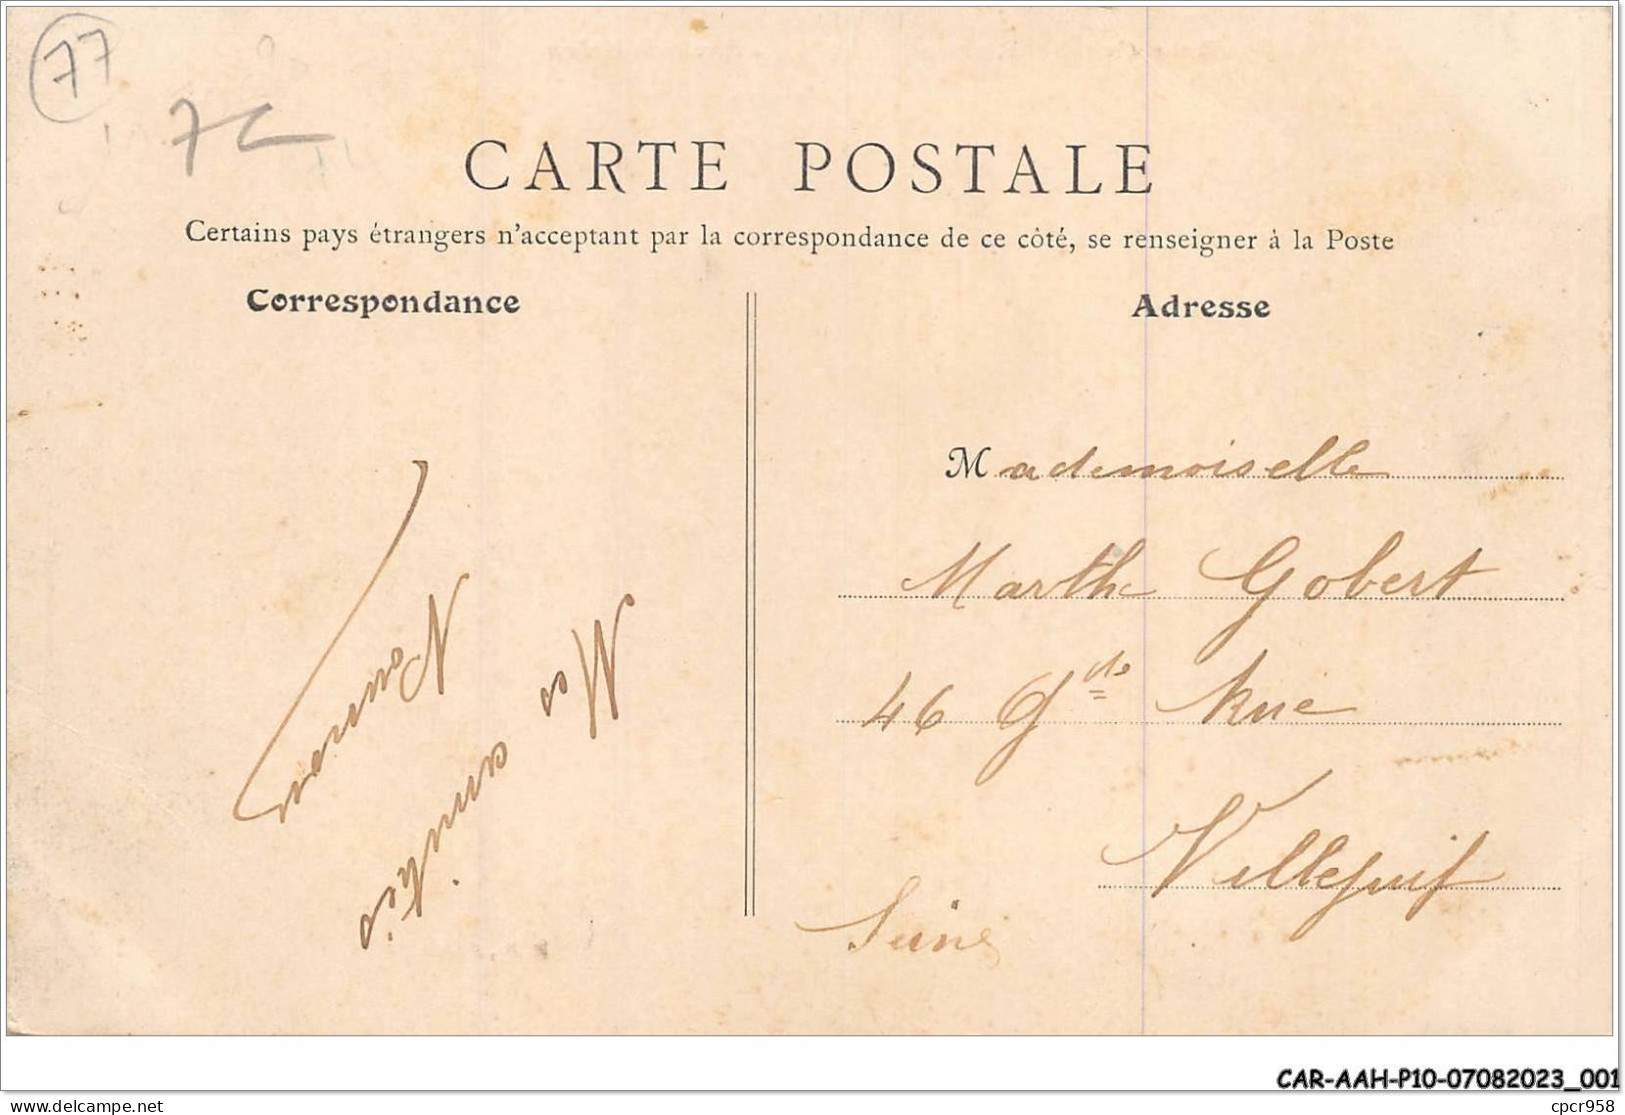 77
7C
CARTE POSTALE
Certains pays étrangers n'acceptant par la correspondance de ce côté, se renseigner à la Poste
Correspondance
Mes amitiés
Adresse
Mademoiselle
Marthe Gobert
46 Gde Rue
Villejuif
Seine
CAR-AAH-P10-07082023_001
www.delcampe.net
cpcr958